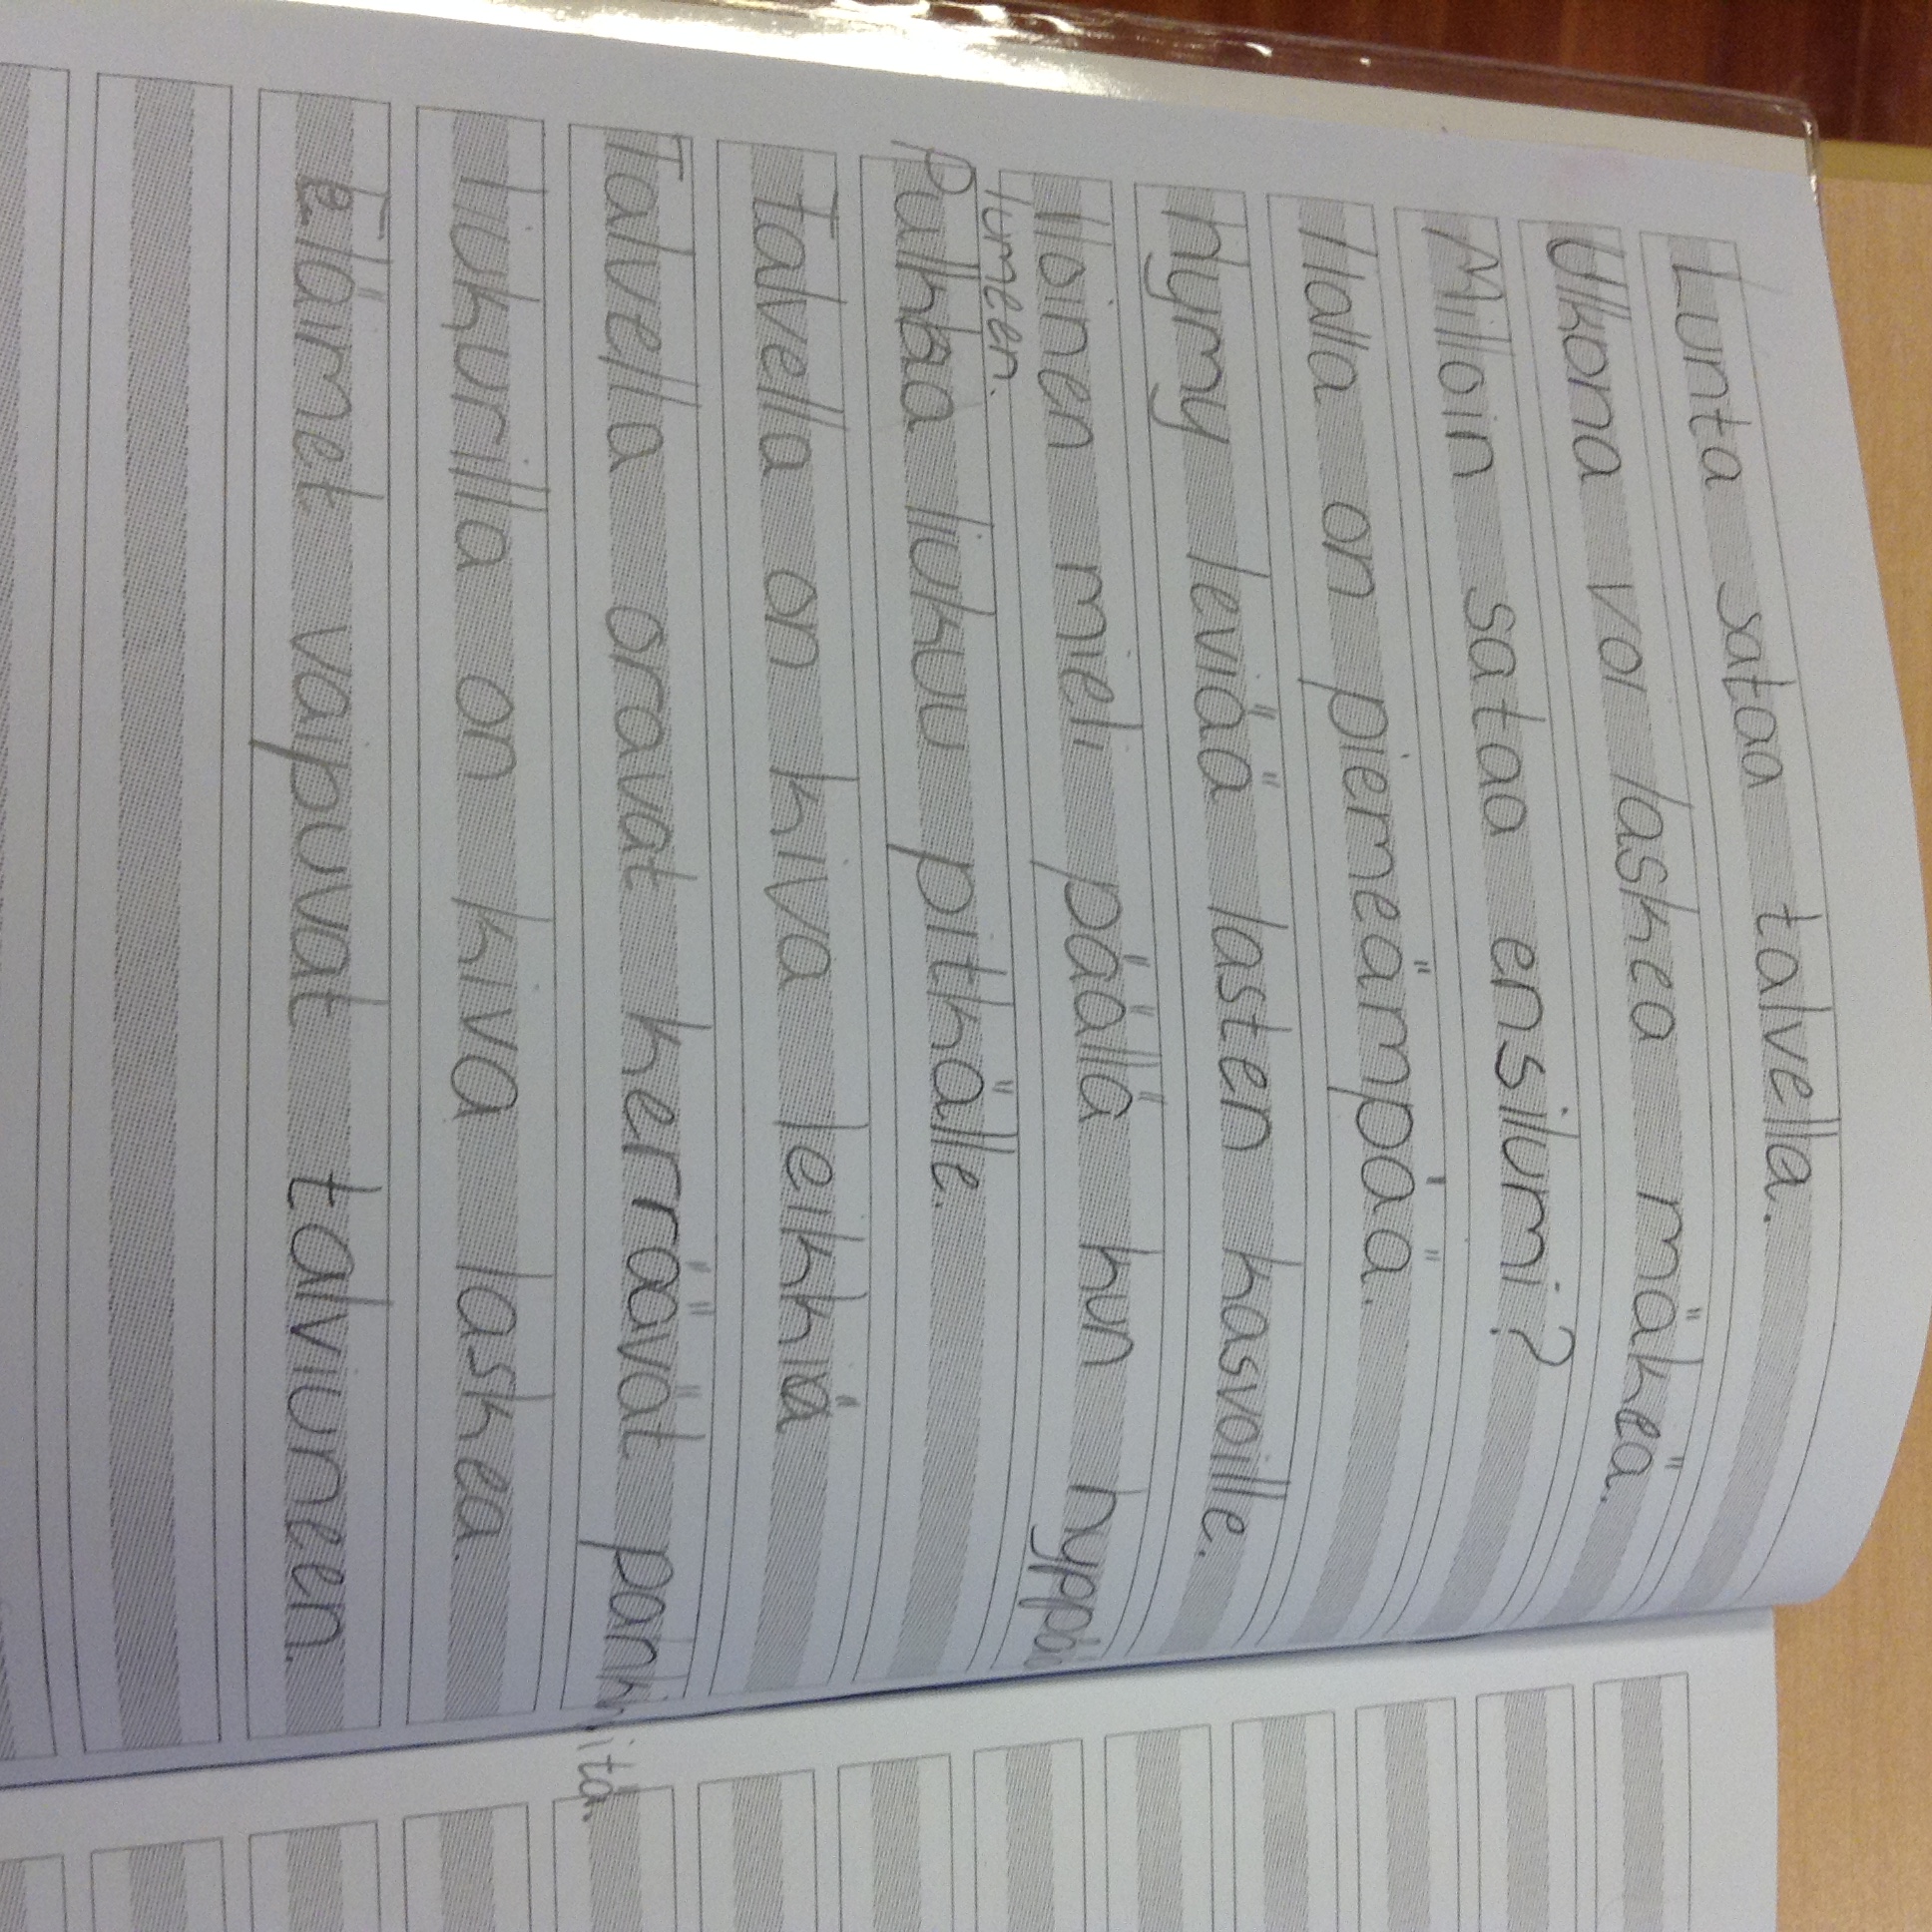 Lunta sataa talvella.
Ulkona voi laskea mäkeä.
Milloin sataa ensilumi?
Illalla on piemeämpää.
Hymy leviää lasten kasvoille.
Iloinen mieli päällä kun hyppää
lumeen.
Pulkbaa liukuu pitkälle.
Talvella on kiva leikkiä
Talvella oravat kerräävät pankkiitä.
liukurilla on kiva laskea.
Eläimet vaipuvat talviuneen.